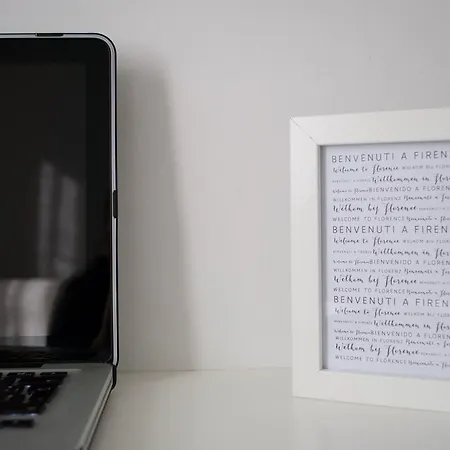 BENVENUTI A FIREN
Welcome to Florence WELKOM BIJ FLOREN
BENVENUTI A FIRENZE Willkommen in Floren
Welcome to Florence BIENVENIDO A FLOREN
WILLKOMMEN IN FLORENZ Benvenuti a Fir
Welkom bij Florence BIENVENIDO A F
WELCOME TO FLORENCE Benvenuti a Fi
BENVENUTI A FIREN
Welcome to Florence WELKOM BIJ FLOR
BENVENUTI A FIRENZE Willkommen in Flor
Welcome to Florence BIENVENIDO A FLOREN
WILLKOMMEN IN FLORENZ Benvenuti a Fi
Welkom bij Florence
WELCOME TO FLORENCE Benvenuti a Fi
BENVENUTI A FIREN
Welcome to Florence WELKOM BIJ FLOR
BENVENUTI A FIRENZE Willkommen in Flo
Welcome to Florence BIENVENIDO A FLOREN
WILLKOMMEN IN FLORENZ Benvenuti a Fi
Welkom bij Florence
WELCOME TO FLORENCE Benvenuti a Fi